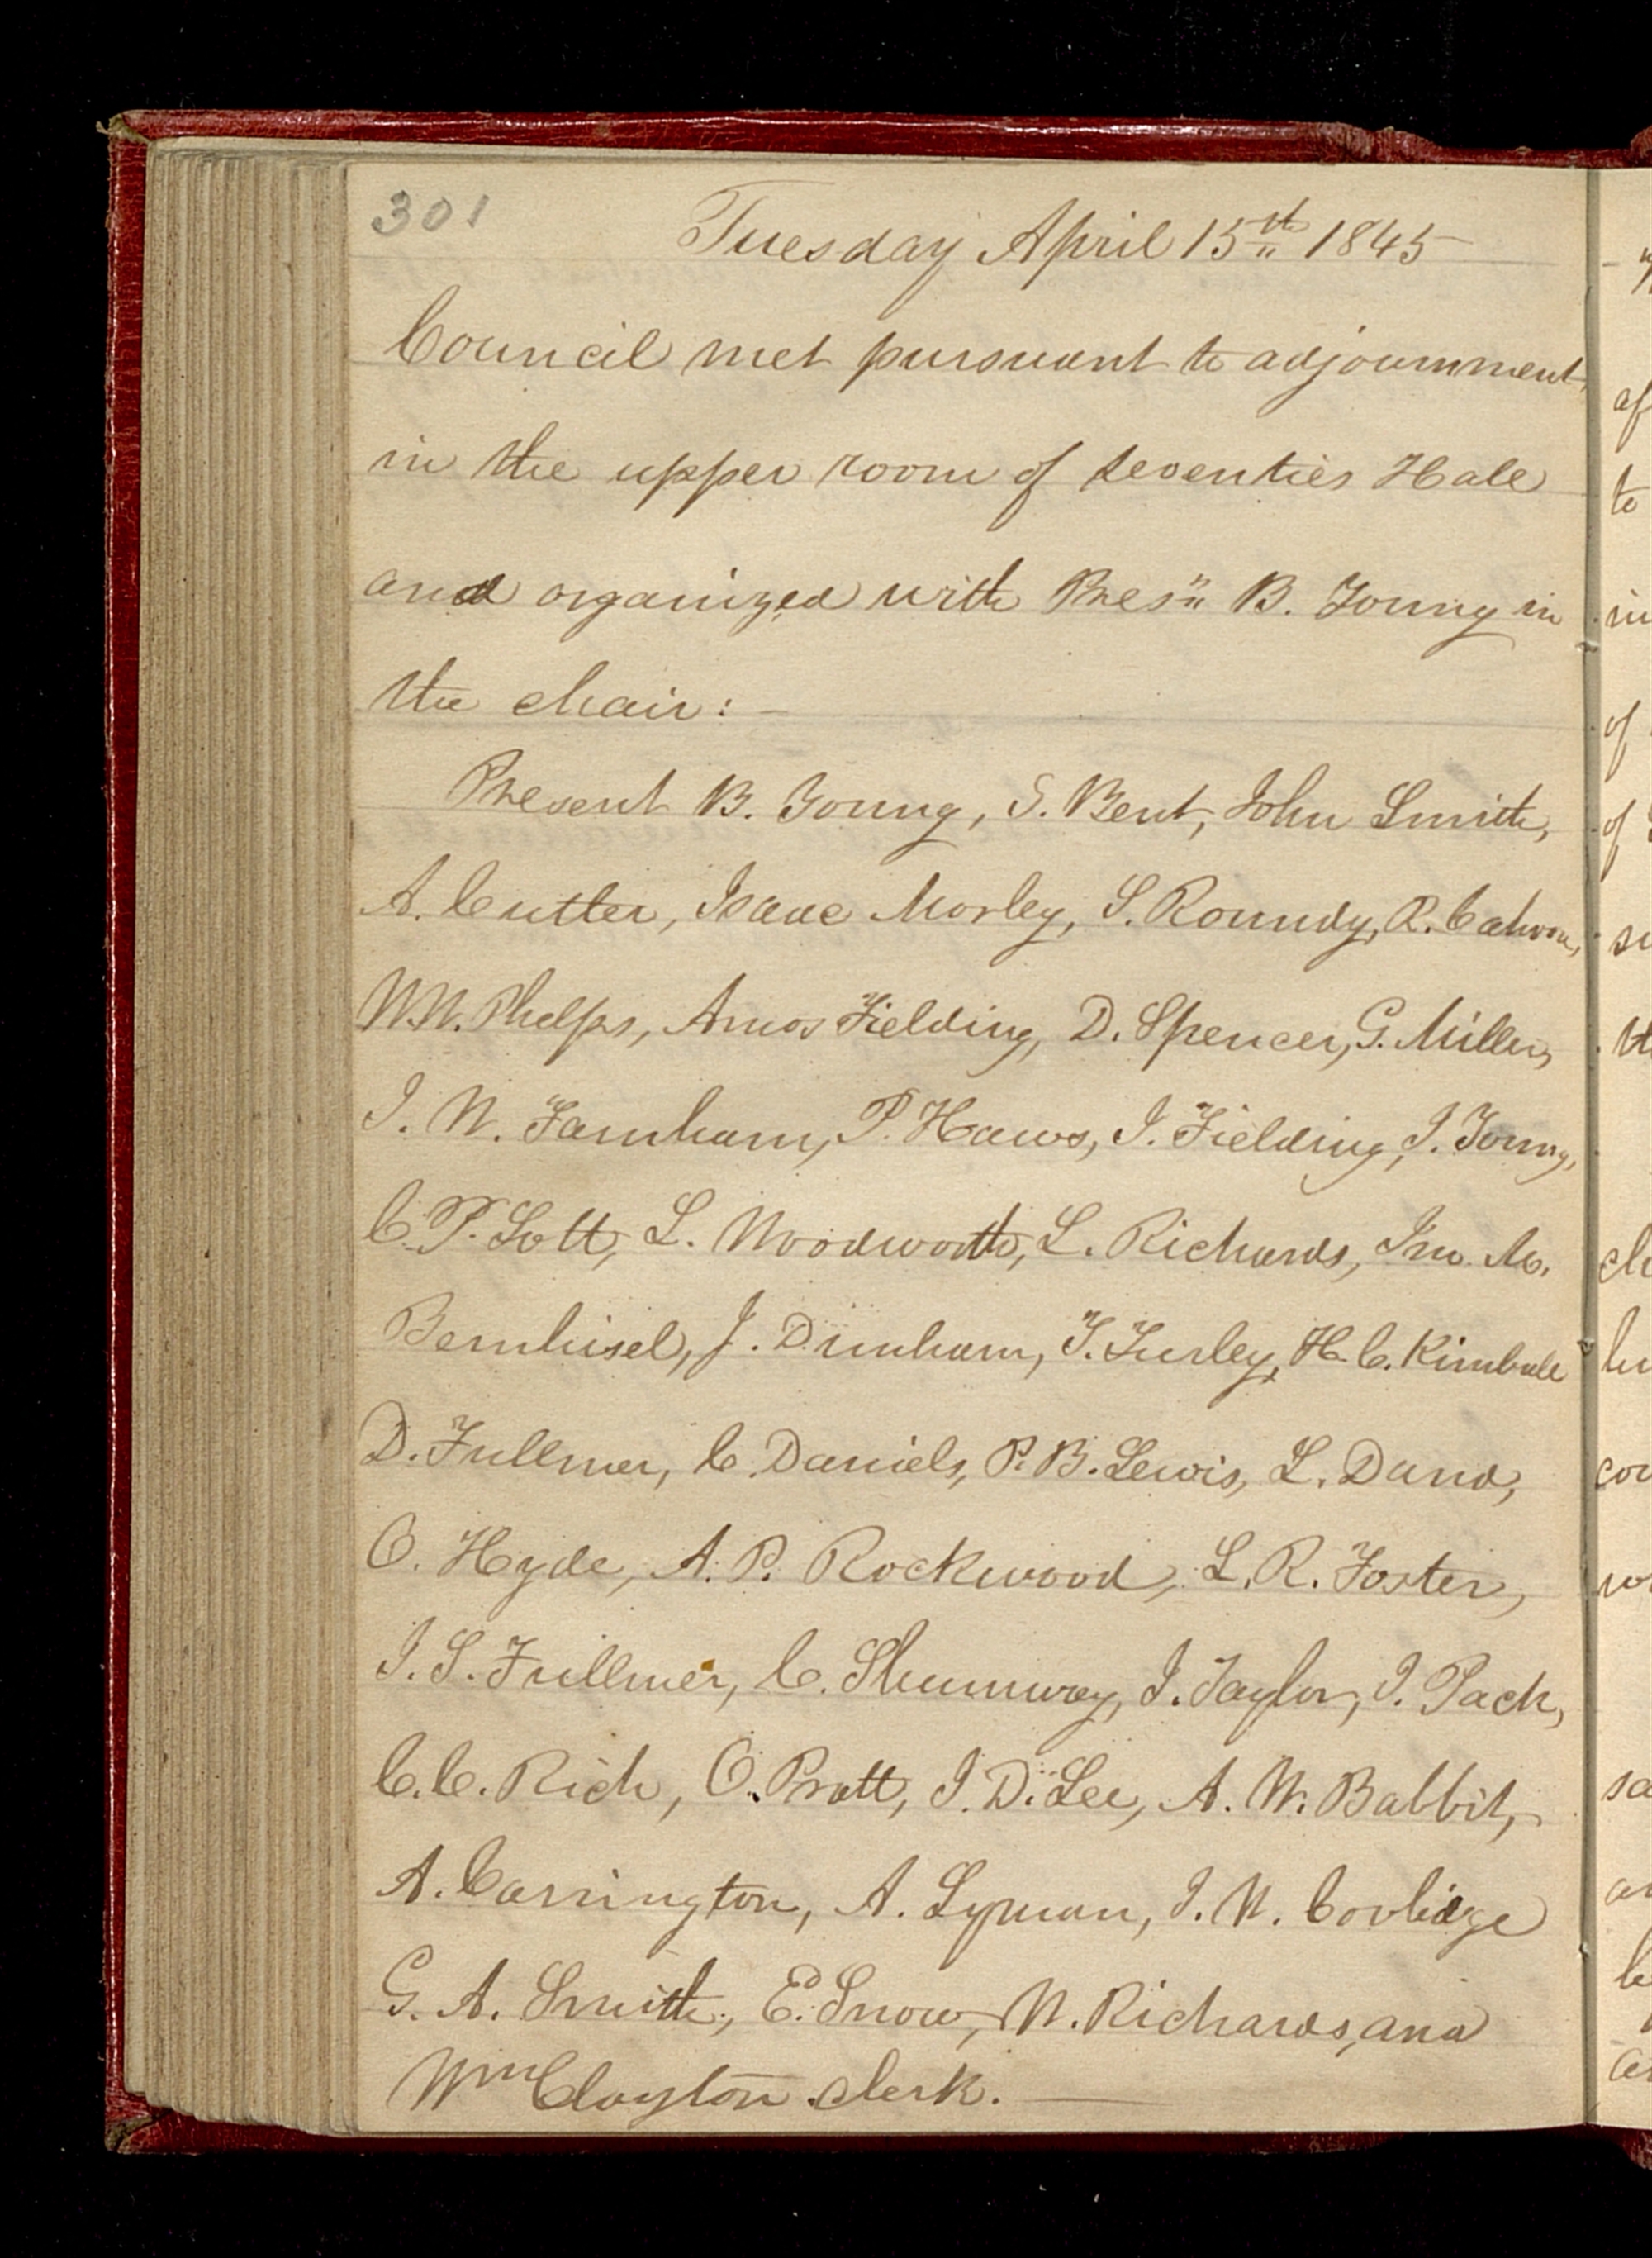 301
Tuesday April 15th 1845
Council met pursuant to adjournment,
in the upper room of seventies Hall
and organized with Pres" B. Young in
the chair: —
Present B. Young, S. Bent, John Smith,
A. Cutler, Isaac Morley, S. Roundy, R. Cahoon,
W.W. Phelps, Amos Fielding, D. Spencer, G. Miller,
J. W. Farnham, P. Haws, J. Fielding, J. Young,
C. P. Lott, L. Woodworth, L. Richards, Jno. M.
Bernhisel, J. Dunham, T. Turley, H. C. Kimball
D. Fullmer, C. Daniels, P. B. Lewis, L. Dana,
O. Hyde, A. P. Rockwood, L. R. Foster,
J. S. Fullmer, C. Shumway, J. Taylor, J. Pack,
C. C. Rich, O. Pratt, J. D. Lee, A. W. Babbit,
A. Carrington, A. Lyman, J. W. Coolidge
G. A. Smith, E. Snow, W. Richards, and
Wm Clayton clerk. —